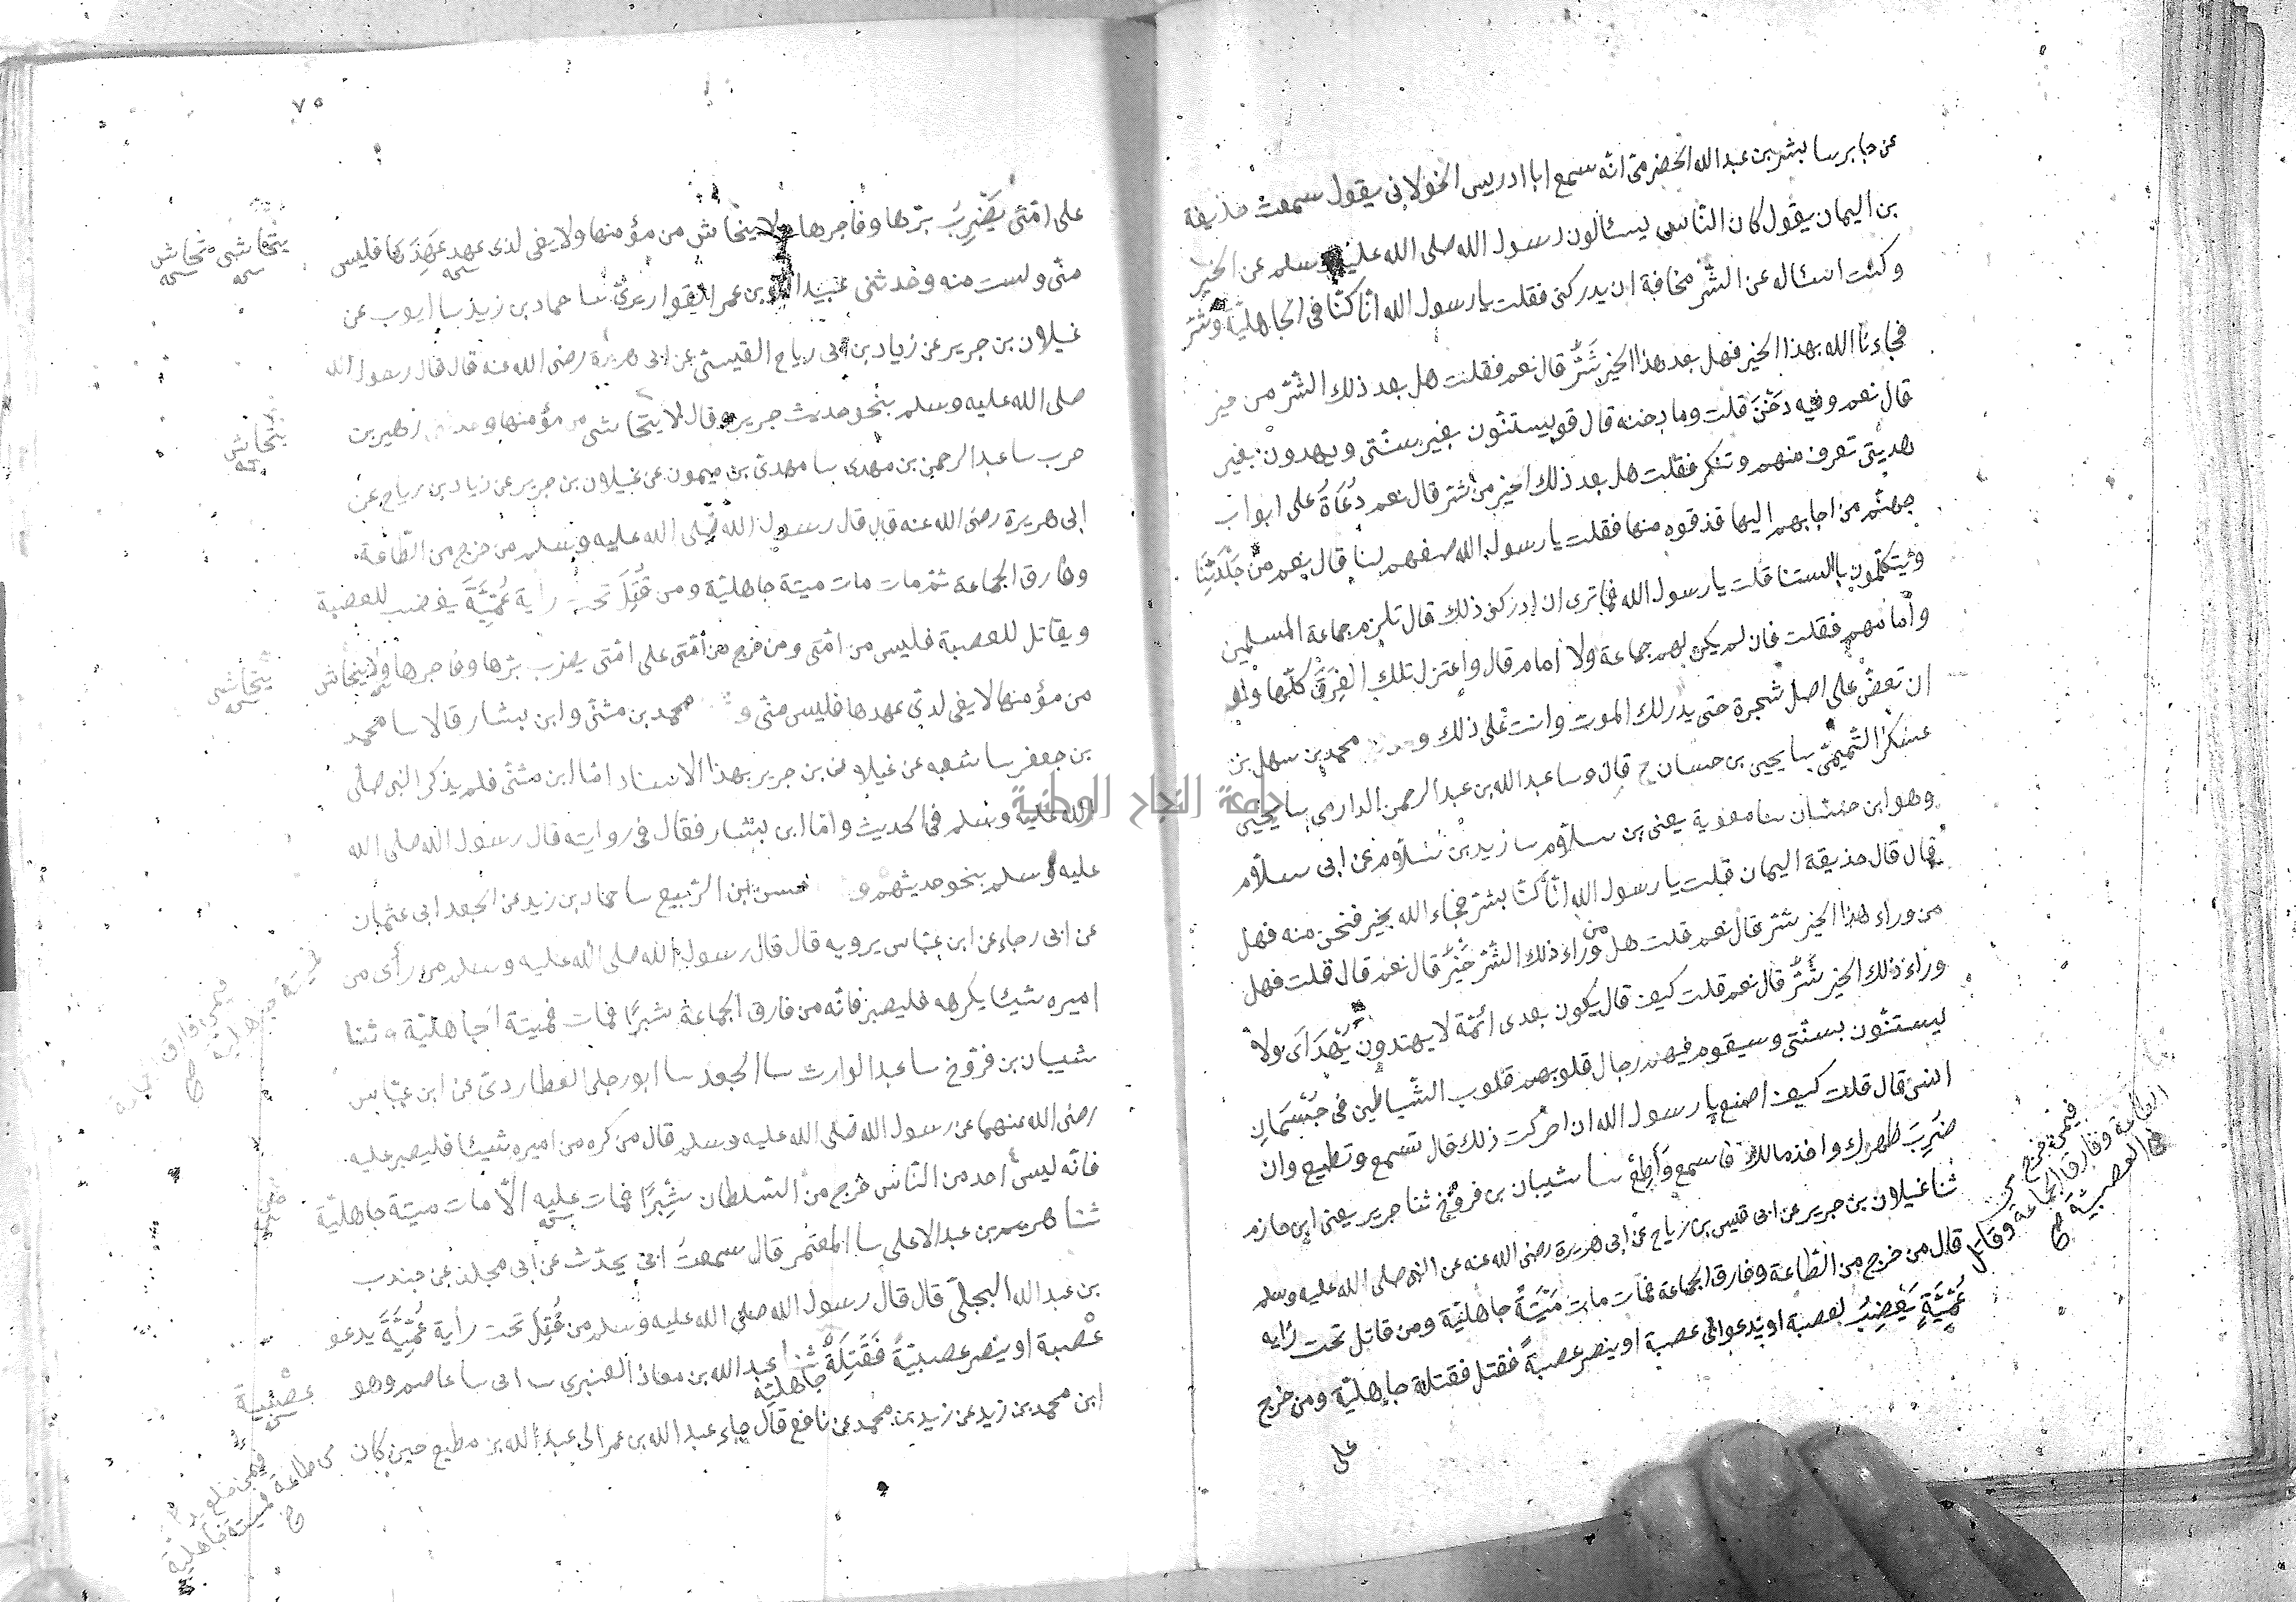 عن جابر سا بشر بن عبد الله الحضرمى انه سمع ابا ادريس الخولانى يقول سمعت حذيفة
بن اليمان يقول كان الناس يسئالون رسول الله صلى الله عليه وسلم عن الخير
وكنت اسئاله عن الشر مخافة ان يدركنى فقلت يا رسول الله انا كنا فى الجاهلية وشر
فجاءنا الله بهذا الخير فهل بعد هذا الخير شَرٌّ قال نعم فقلت هل بعد ذلك الشر من خير
قال نعم وفيه دَخَنٌ قلت وما دخنه قال قوم يستنون بغير سنتى ويهدون بغير
هديتى تعرف منهم وتنكر فقلت هل بعد ذلك الخير من شر قال نعم دُعَاةُ على ابواب
جهنم من اجابهم اليها قذفوه منها فقلت يا رسول الله صفهم لنا قال نعم من جلدتنا
ويتكلمون بالستنا قلت يا رسول الله فما ترى ان ادركنى ذلك قال تلزم جماعة المسلمين
وامامهم فقلت فان لم يكن لهم جماعة ولا امام قال واعتزل تلك الفِرَقَ كلها ولو
ان تعض على اصل شجرة حتى يدركك الموت وانت على ذلك و محمد بن سهل بن
عسكر التميمى سا يحيى بن حسان ح قال وسا عبد الله بن عبد الرحمن الدارمى سا يحيى
وهو ابن حسّان سا معوية يعنى بن سلاّم سا زيد بن سلاّم عن ابى سلاّم
قال قال حذيفة اليمان قلت يا رسول الله انا كنا بشر فجاء الله بخير فنحن منه فهل
من وراء هذا الخير شر قال نعم قلت هل من وراء ذلك الشر خَيْرٌ قال نعم قال قلت فهل
وراء ذلك الخير شَرٌّ قال نعم قلت كيف قال يكون بعدى ائمة لا يهتدون بهُدَاىَ ولا
يستنون بسنتى وسيقوم فيهم رجال قلوبهم قلوب الشياطين فى جُثْمَانِ
انس قال قلت كيف اصنع يا رسول الله ان ادركت ذلك قال تسمع وتطيع وان
ضَرِبَ ظهرك واخذ مالك فاسمع وَأَطِعْ سا شيبان بن فروخ ثنا جرير يعنى ابن حازم
ثنا غيلان بن جرير عن ابى قيس بن رياح عن ابى هريرة رضى الله عنه عن النبى صلى الله عليه وسلم
قال من خرج من الطاعة وفارق الجماعة فمات مات مَيْتَةً جاهلية ومن قاتل تحت رايه
عُمِّيَّةٍ يَغْضِبُ لعصبة او يدعوا الى عصبة او ينصر عصبةً فقتل فقتلة جاهلية ومن خرج
على
فيمن خرج عن
الطاعة وفارق الجماعة وقاتل
فى العصبية
٧٥
على امتى يَضْرِبَ برها وفاجرها ولا يتحاش من مؤمنها ولا يفى لذى عهدٍ عَهدَها فليس
منى ولست منه وحدثنى عبيد الله بن عمر القواريرى سا حماد بن زيد سا ايوب عن
غيلان بن جرير عن زياد بن ابى رياح القيسى عن ابى هريرة رضى الله عنه قال قال رسول الله
صلى الله عليه وسلم بنحو حديث جرير وقال لا يتحاشى من مؤمنها و زهير بن
حرب سا عبد الرحمن بن مهدى سا مهدى بن ميمون عن غيلان بن جرير عن زياد بن رياح عن
ابى هريرة رضى الله عنه قال قال رسول الله صلى الله عليه وسلم من خرج من الطاعة
وفارق الجماعة ثم مات مات ميتة جاهلية ومن قُتِلَ تحت راية عُمِّيَّةَ يغضب للعصبة
ويقاتل للعصبة فليس من امتى ومن خرج من امتى على امتى يضرب برها وفاجرها ولا يتحاش
من مؤمنها لا يفى لذى عهدها فليس منى و محمد بن مثنى وابن بشار قالا سا محمد
بن جعفر سا شعبه عن غيلان بن جرير بهذا الاسناد اما ابن مثنى فلم يذكر النبى صلى
الله عليه وسلم فى الحديث واما ابن بشار فقال فى روايته قال رسول الله صلى الله
عليه وسلم بنحو حديثهم و حسن ابن الربيع سا حماد بن زيد عن الجعد ابى عثمان
عن ابى رجاء عن ابن عباس يرويه قال قال رسول الله صلى الله عليه وسلم من رأى من
اميره شيئا يكرهه فليصبر فانه من فارق الجماعة شبرًا فمات فميتة جاهلية وثنا
شيبان بن فروخ سا عبد الوارث سا الجعد سا ابو رجاء العطاردى عن ابن عباس
رضى الله عنهما عن رسول الله صلى الله عليه وسلم قال من كره من اميره شيئا فليصبر عليه
فانه ليس احد من الناس خرج من السلطان شِبْرًا فمات عليه الا مات ميتة جاهلية
ثنا هريم بن عبد الاعلى سا المعتمر قال سمعت ابى يحدّث عن ابى مجلز عن جندب
بن عبد الله البجلى قال قال رسول الله صلى الله عليه وسلم من قُتِلَ تحت راية عُمِّيَّةَ يدعو
عصبة او ينصر عصبيّةً فَقَتِلَةٌ جاهلية ثنا عبد الله بن معاذ العنبرى سا ابى سا عاصم وهو
ابن محمد بن زيد عن زيد بن محمد عن نافع قال جاء عبد الله بن عمر الى عبد الله بن مطيع حين كان
يتحاشى يتحاش
يتحاش
يتحاشى
فيمن فارق الجماعة
عصبية
فيمن خلع يده
من طاعة فميتة جاهلية
جامعة النجاح الوطنية